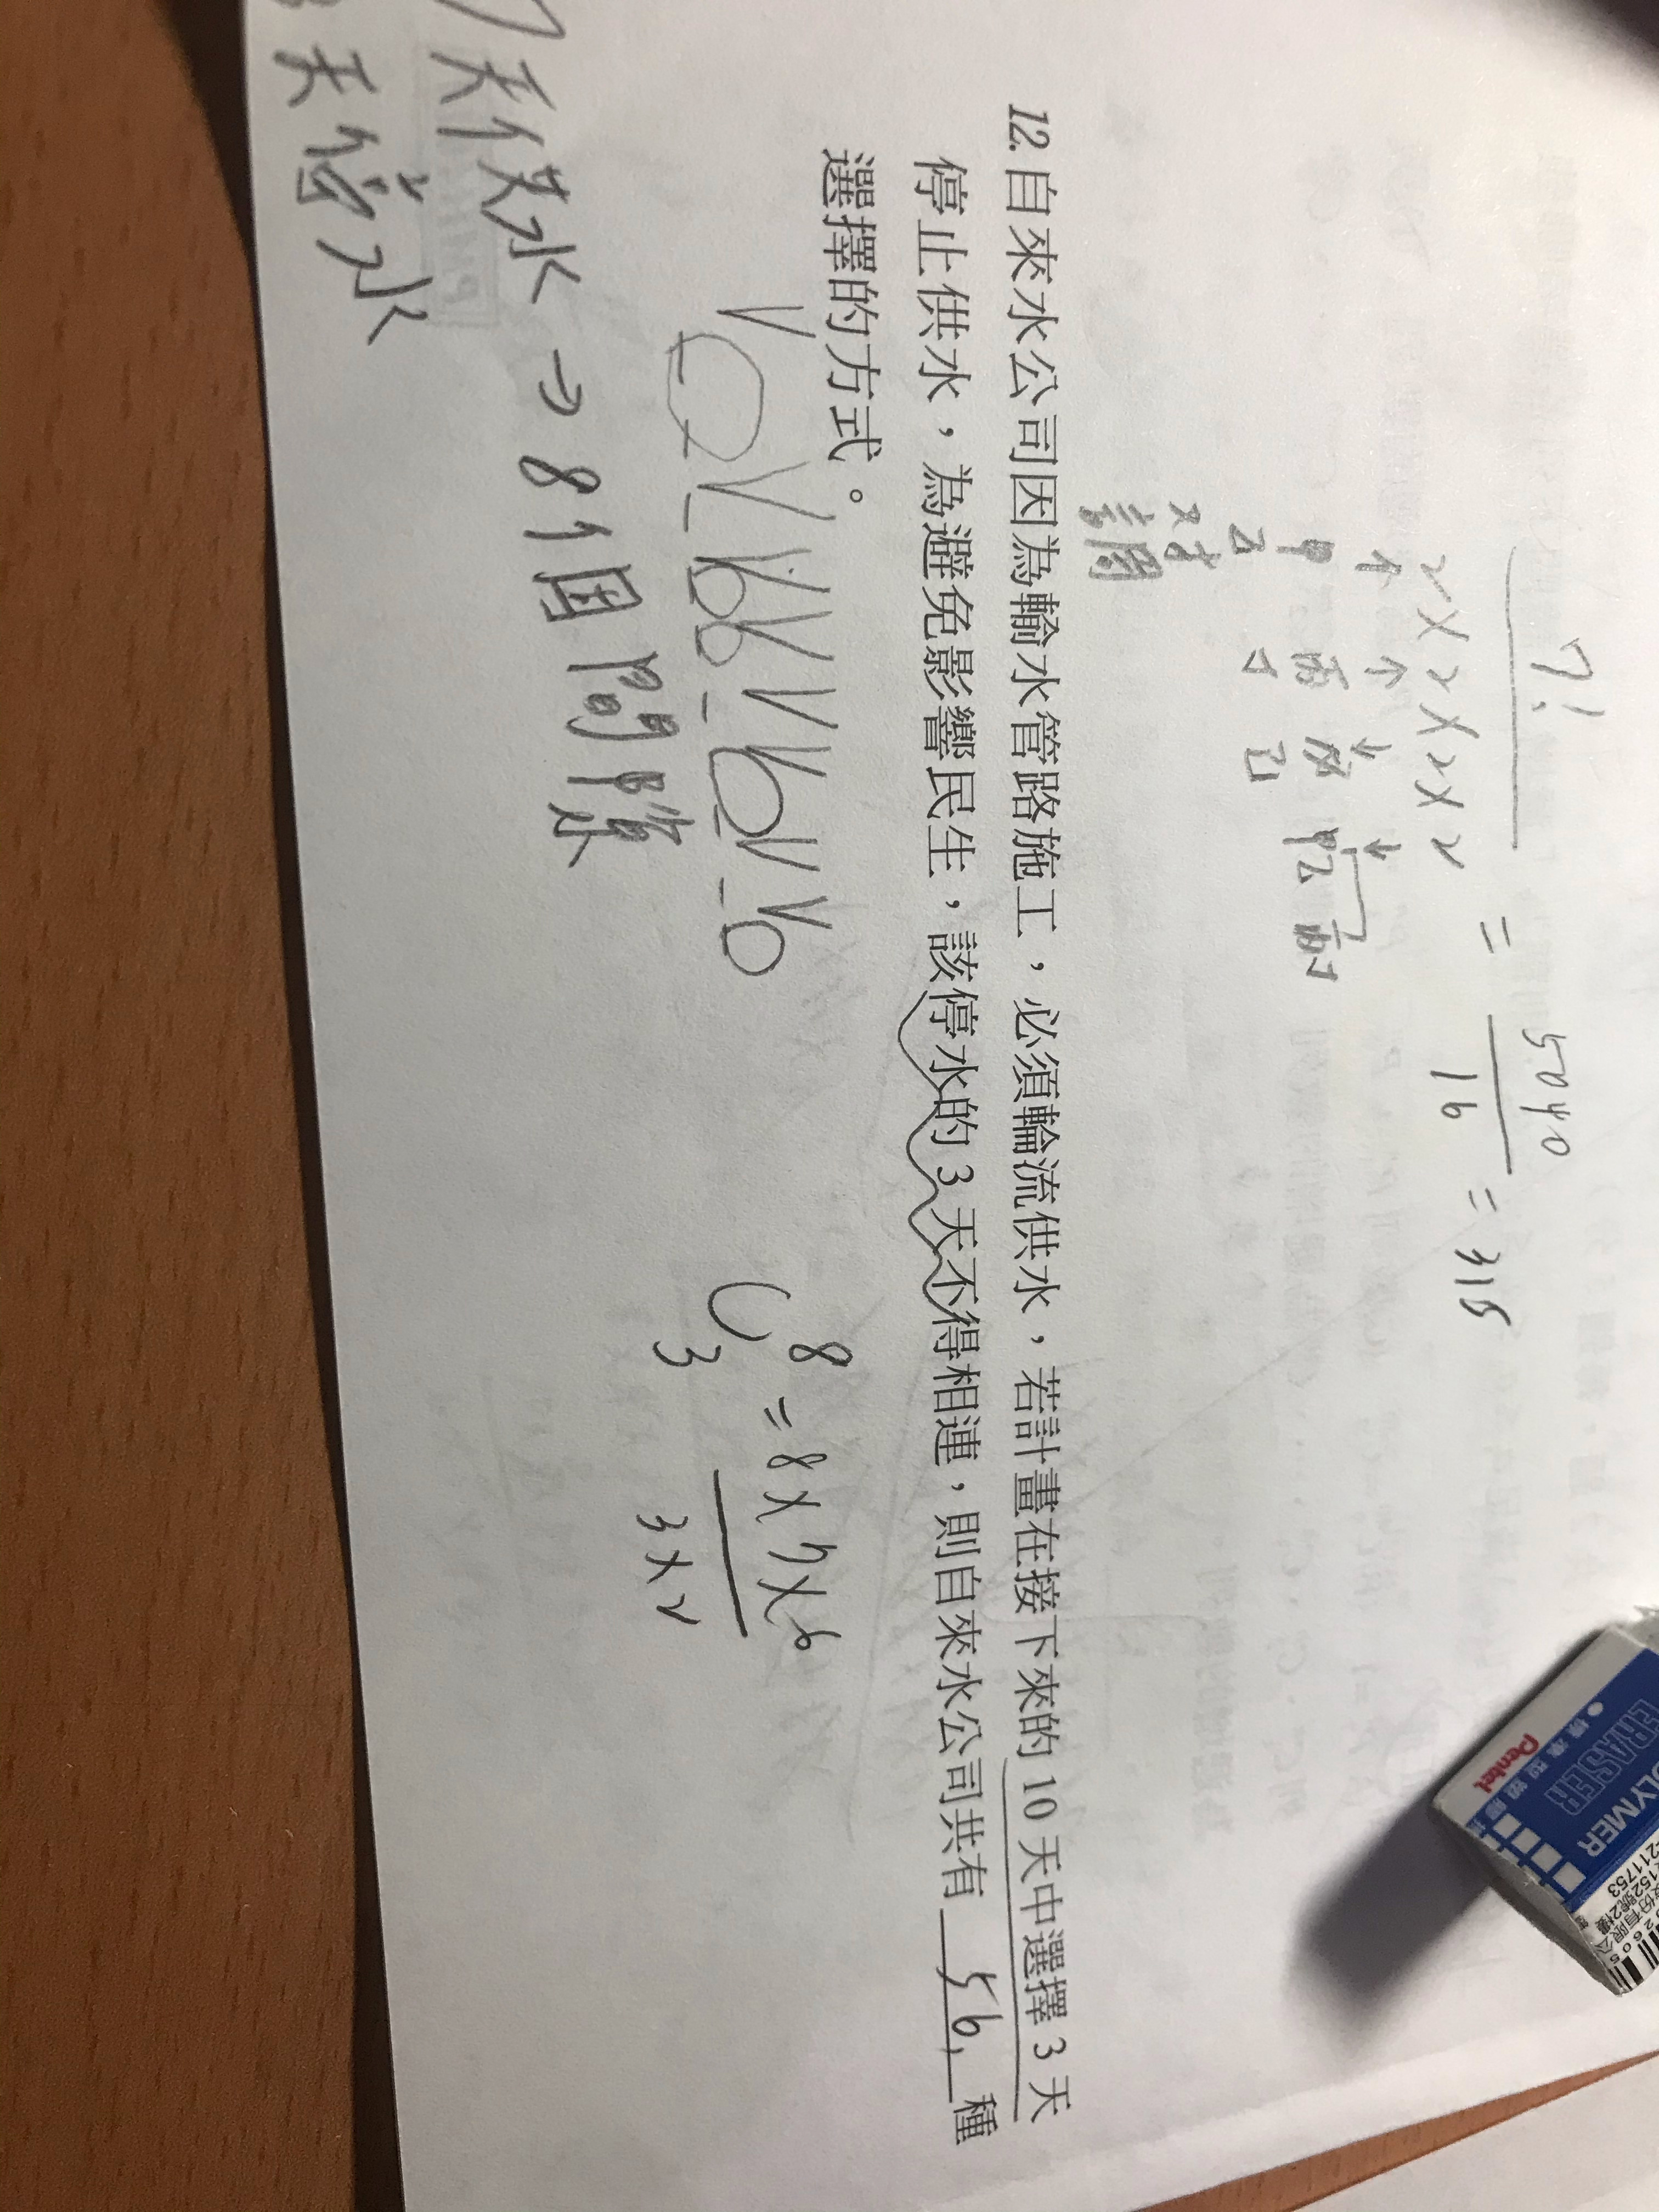 7! = 5040 = 315
2×2×2×2 16
↑ ↑ ↓ ↓
甲 丙 戊
乙 丁 己
對
調
12. 自來水公司因為輸水管路施工，必須輪流供水，若計畫在接下來的 10 天中選擇 3 天
停止供水，為避免影響民生，該停水的 3 天不得相連，則自來水公司共有 56 種
選擇的方式。
C 8 3 = 8×7×6
3×2
7天供水 → 8个間隙
3天停水
Pentel
POLYMER
ERASER